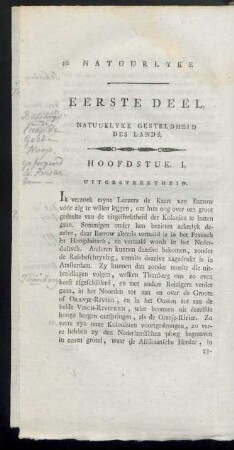 10 NATUURLYKE
EERSTE DEEL.
NATUURLYKE GESTELDHEID
DES LANDS.
HOOFDSTUK. I.
UITGESTREKTHEID.
Ik verzoek myne Lezers de Kaart van Barrow
vóór zig te willen leggen, om hun oog over een groot
gedeelte van de uitgestrektheid der Kolonien te laten
gaan. Sommigen onder hen bezitten zekerlyk de-
zelve, daar Barrow alreeds vertaald is in het Fransch
en Hoogduitsch, en vertaald wordt in het Neder-
duitsch. Anderen kunnen dezelve bekomen, zonder
de Reisbeschryving, vermits dezelve nagedrukt is in
Amsterdam. Zy kunnen dan zonder moeite die uit-
breidingen volgen, welken Thunberg ons zo even
heeft afgeschilderd, en met andere Reizigers verder
gaan, in het Noorden tot aan en over de Groote
of Oranje-Rivier, en in het Oosten tot aan de
beide Visch-Rivieren, wier bronnen uit dezelfde
hooge bergen ontspringen, als de Oranje-Rivier. Zo
verre zyn onze Kolonisten voortgedrongen, zo ver-
re hebben zy den Nederlandschen ploeg begraaven
in eenen grond, waar de Afrikaansche Herder, in
zy-